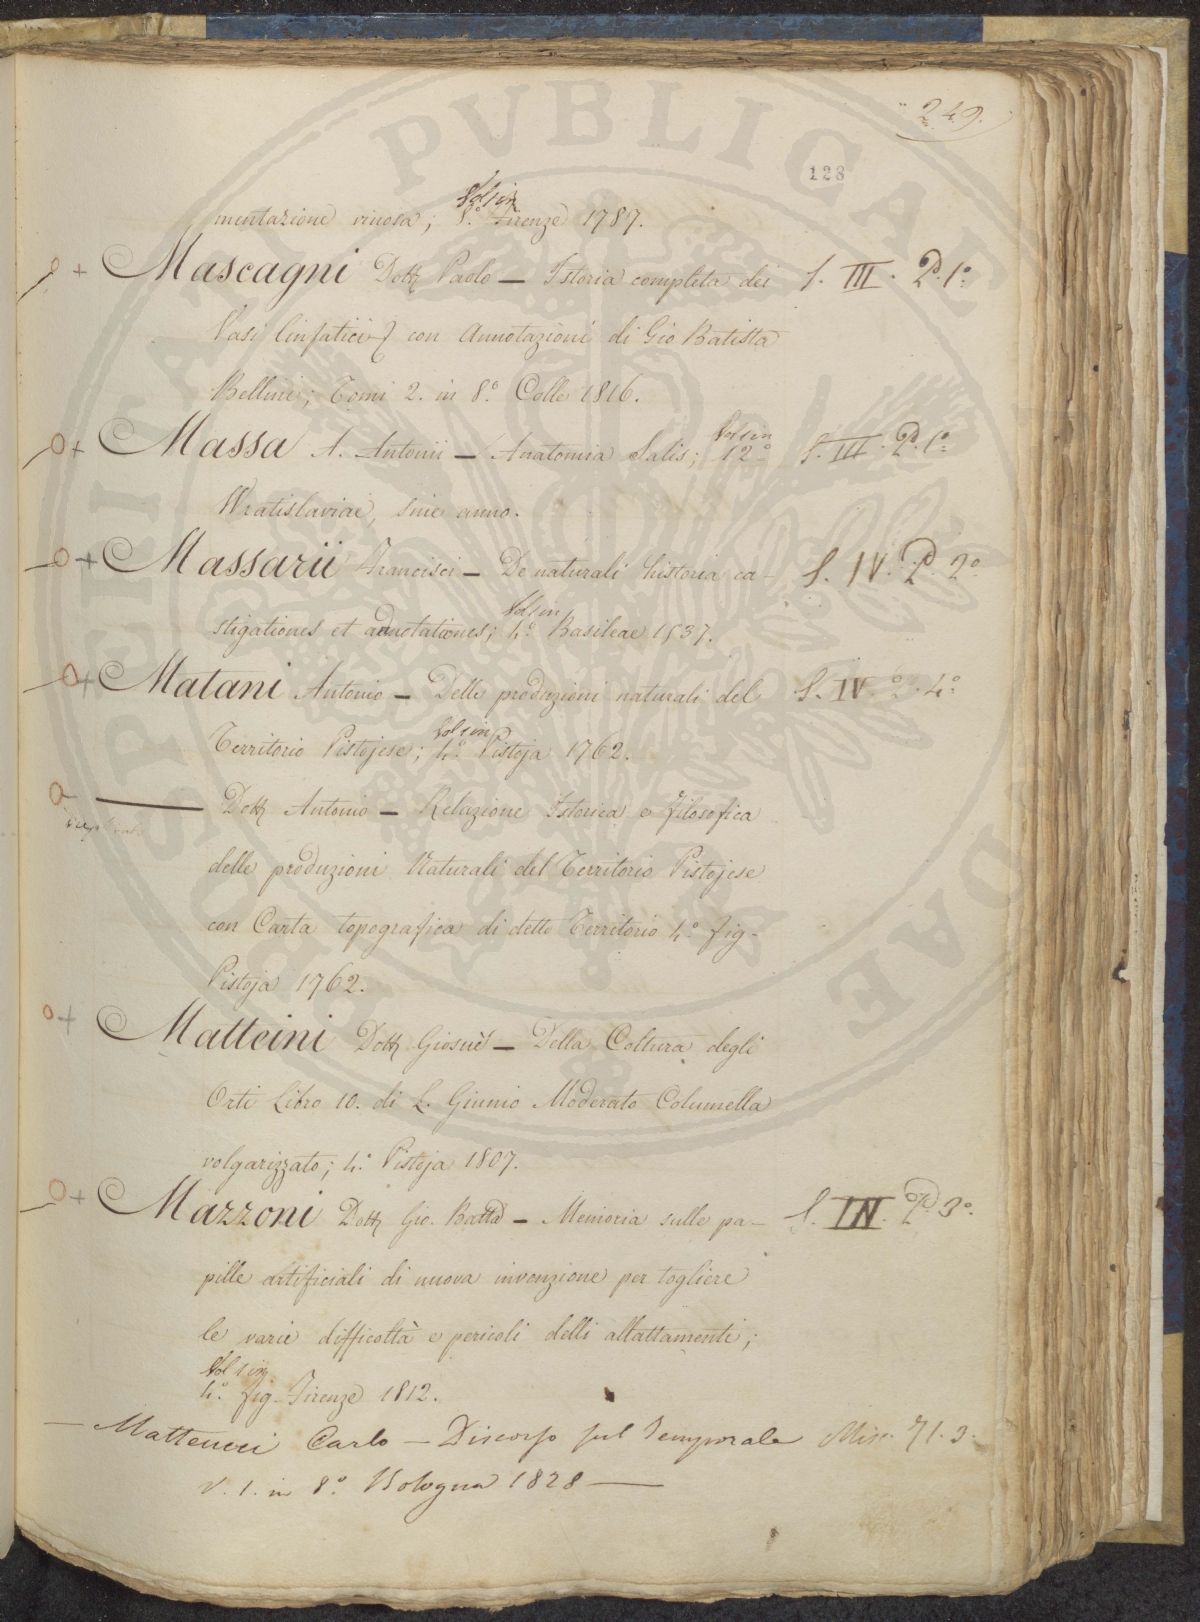 249.
128
mentazione vinosa; Vol 1 in 8.° Firenze 1787.
+ Mascagni Dott Paolo — Istoria completa dei S. III. P. 1°
Vasi linfatici con Annotazioni di Gio Batista
Bellini; Tomi 2. in 8.° Colle 1816.
+ Massa A. Antonii — Anatomia Salis; Vol 1 in 12° S. III. P. 1°
Wratislaviae, sine anno.
+ Massarii Francisci — De naturali historia ca- S. IV. P. 2°
stigationes et adnotationes; Vol 1 in 4.° Basileae 1537.
+ Matani Antonio — Delle produzioni naturali del S. IV. P. 4°
Territorio Pistojese; Vol 1 in 4.° Pistoja 1762.
— Dott Antonio — Relazione Istorica e filosofica
duplicato
delle produzioni Naturali del Territorio Pistojese
con Carta topografica di detto Territorio 4.° fig-
Pistoja 1762.
+ Matteini Dott Giosuè — Della Coltura degli
Orti Libro 10. di L. Giunio Moderato Columella
volgarizzato; 4.° Pistoja 1807.
+ Mazzoni Dott Gio. Batta — Memoria sulle pa- S. IV. P. 3°.
pille artificiali di nuova invenzione per togliere
le varie difficoltà e pericoli delli allattamenti;
Vol 1 in 4.° fig- Firenze 1812.
— Matteucci Carlo — Discorso sul Temporale Misc. 71. 3.
V. 1. in 8.° Bologna 1828 —
PUBLICAE